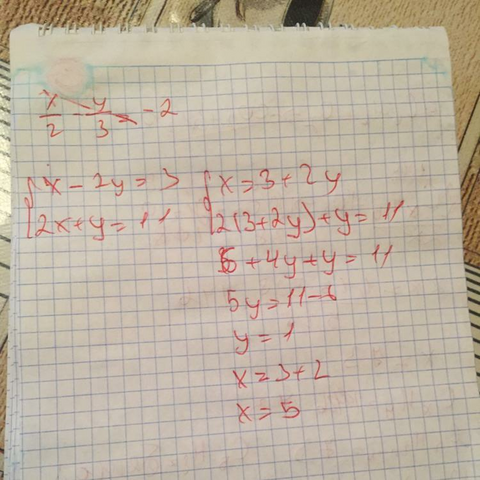 x/2 - y/3 = -2
{ x - 2y = 3
2x + y = 11
{ x = 3 + 2y
2(3 + 2y) + y = 11
6 + 4y + y = 11
5y = 11 - 6
y = 1
x = 3 + 2
x = 5